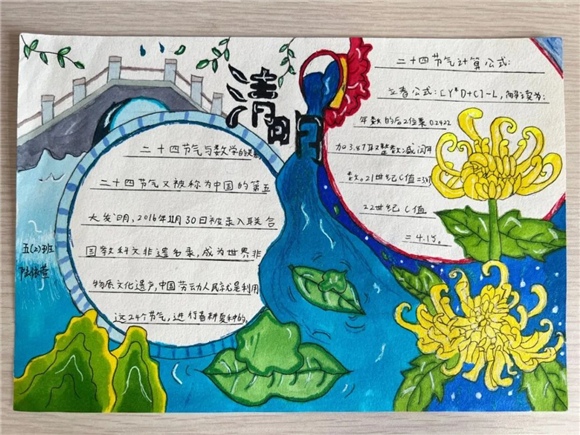 清明
二十四节气与数学的关系
二十四节气又被称为中国的第五
大发明,2016年11月30日被录入联合
国教科文非遗名录,成为世界非
物质文化遗产,中国劳动人民就是利用
这24个节气,进行春耕夏种的。
二十四节气计算公式:
立春公式:[Y*D+C]-L,
年数的后2位乘0.2422
加3.87取整数减闰年
数,21世纪C值=3.87
22世纪C值
=4.15。
五(2)班